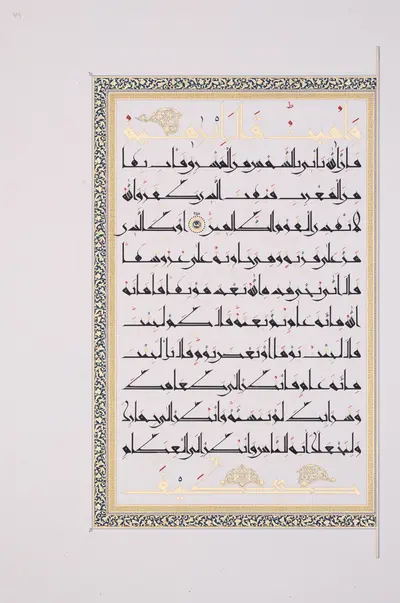 وأميت قال إبرهيم
فإن الله يأتي بالشمس من المشرق فأت بها
من المغرب فبهت الذي كفر والله
لا يهدي القوم الظلمين أو كالذي
مر على قرية وهي خاوية على عروشها
قال أنى يحي هذه الله بعد موتها فأماته
الله مائة عام ثم بعثه قال كم لبثت
قال لبثت يوما أو بعض يوم قال بل لبثت
مائة عام فانظر إلى طعامك
وشرابك لم يتسنه وانظر إلى حمارك
ولنجعلك آية للناس وانظر إلى العظام
كيف